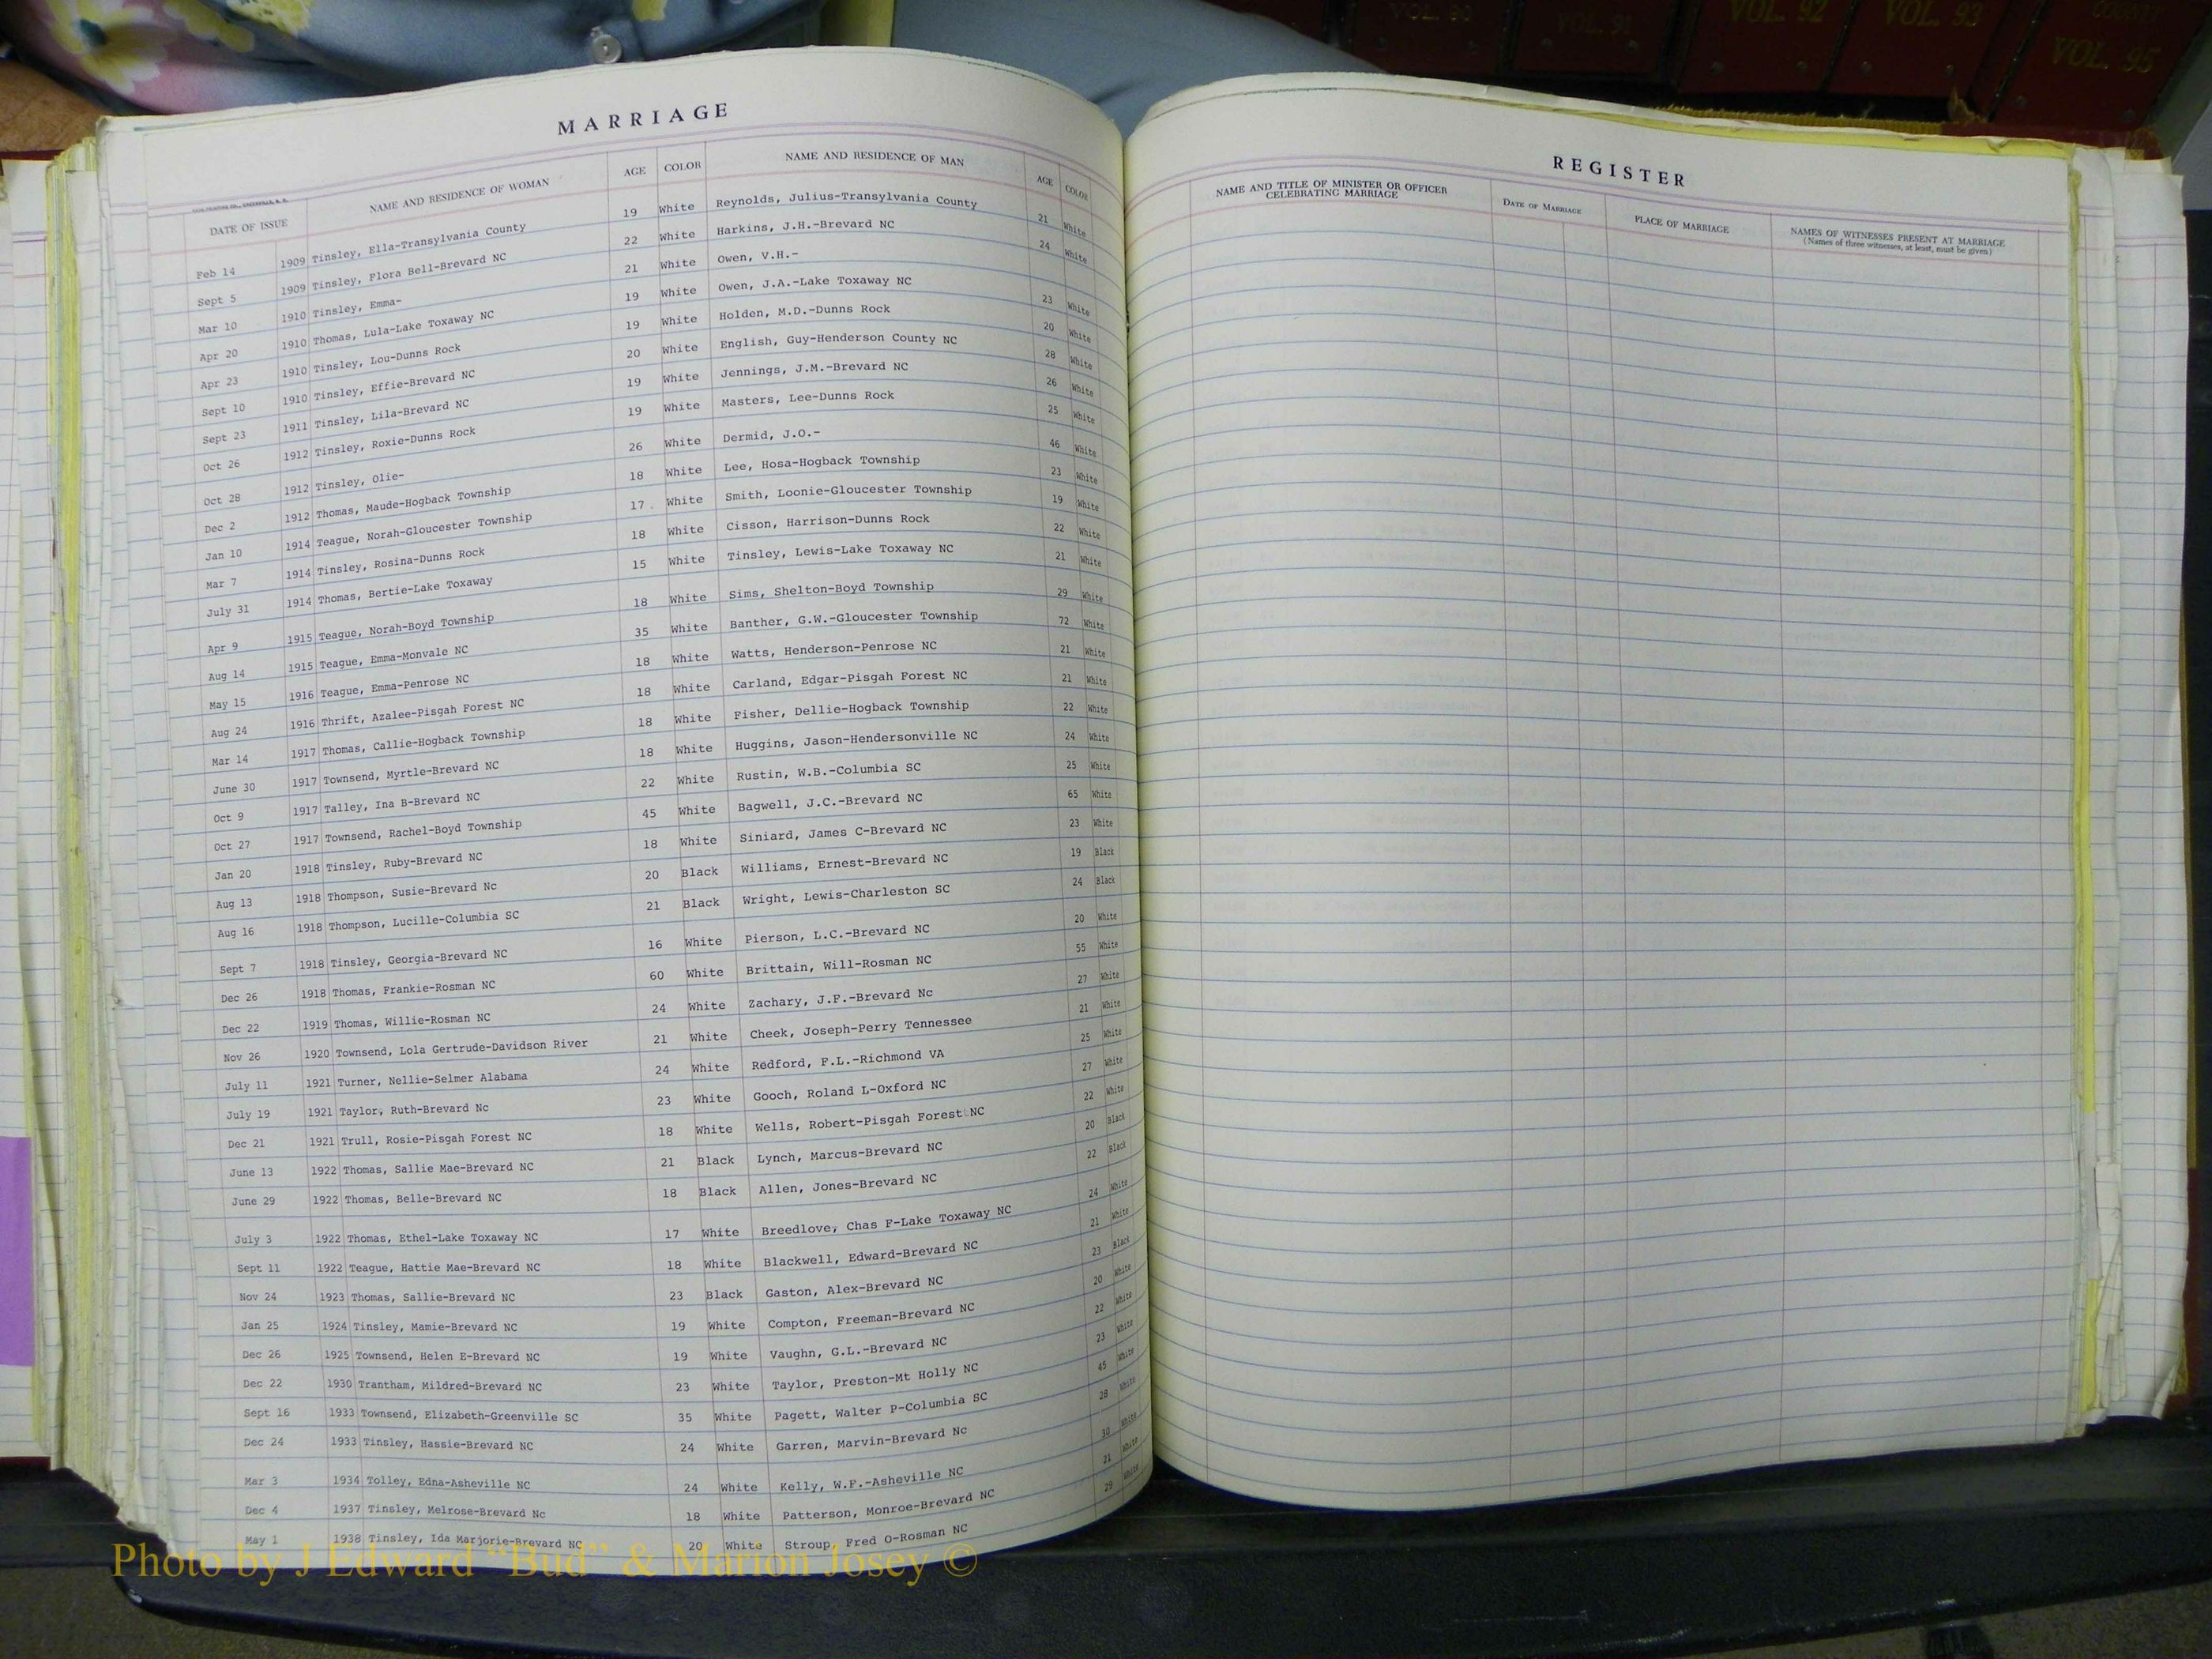 VOL. 90 VOL. 91 VOL. 92 VOL. 93 VOL. 95
MARRIAGE
DATE OF ISSUE NAME AND RESIDENCE OF WOMAN AGE COLOR NAME AND RESIDENCE OF MAN AGE COLOR
Feb 14 1909 Tinsley, Ella-Transylvania County 19 White Reynolds, Julius-Transylvania County 21 White
Sept 5 1909 Tinsley, Flora Bell-Brevard NC 22 White Harkins, J.H.-Brevard NC 24 White
Mar 10 1910 Tinsley, Emma- 21 White Owen, V.H.-
Apr 20 1910 Thomas, Lula-Lake Toxaway NC 19 White Owen, J.A.-Lake Toxaway NC 23 White
Apr 23 1910 Tinsley, Lou-Dunns Rock 19 White Holden, M.D.-Dunns Rock 20 White
Sept 10 1910 Tinsley, Effie-Brevard NC 20 White English, Guy-Henderson County NC 28 White
Sept 23 1911 Tinsley, Lila-Brevard NC 19 White Jennings, J.M.-Brevard NC 26 White
Oct 26 1912 Tinsley, Roxie-Dunns Rock 19 White Masters, Lee-Dunns Rock 25 White
Oct 28 1912 Tinsley, Olie- 26 White Dermid, J.O.- 46 White
Dec 2 1912 Thomas, Maude-Hogback Township 18 White Lee, Hosa-Hogback Township 23 White
Jan 10 1914 Teague, Norah-Gloucester Township 17 White Smith, Loonie-Gloucester Township 19 White
Mar 7 1914 Tinsley, Rosina-Dunns Rock 18 White Cisson, Harrison-Dunns Rock 22 White
July 31 1914 Thomas, Bertie-Lake Toxaway 15 White Tinsley, Lewis-Lake Toxaway NC 21 White
Apr 9 1915 Teague, Norah-Boyd Township 18 White Sims, Shelton-Boyd Township 29 White
Aug 14 1915 Teague, Emma-Monvale NC 35 White Banther, G.W.-Gloucester Township 72 White
May 15 1916 Teague, Emma-Penrose NC 18 White Watts, Henderson-Penrose NC 21 White
Aug 24 1916 Thrift, Azalee-Pisgah Forest NC 18 White Carland, Edgar-Pisgah Forest NC 21 White
Mar 14 1917 Thomas, Callie-Hogback Township 18 White Fisher, Dellie-Hogback Township 22 White
June 30 1917 Townsend, Myrtle-Brevard NC 18 White Huggins, Jason-Hendersonville NC 24 White
Oct 9 1917 Talley, Ina B-Brevard NC 22 White Rustin, W.B.-Columbia SC 25 White
Oct 27 1917 Townsend, Rachel-Boyd Township 45 White Bagwell, J.C.-Brevard NC 65 White
Jan 20 1918 Tinsley, Ruby-Brevard NC 18 White Siniard, James C-Brevard NC 23 White
Aug 13 1918 Thompson, Susie-Brevard Nc 20 Black Williams, Ernest-Brevard NC 19 Black
Aug 16 1918 Thompson, Lucille-Columbia SC 21 Black Wright, Lewis-Charleston SC 24 Black
Sept 7 1918 Tinsley, Georgia-Brevard NC 16 White Pierson, L.C.-Brevard NC 20 White
Dec 26 1918 Thomas, Frankie-Rosman NC 60 White Brittain, Will-Rosman NC 55 White
Dec 22 1919 Thomas, Willie-Rosman NC 24 White Zachary, J.F.-Brevard Nc 27 White
Nov 26 1920 Townsend, Lola Gertrude-Davidson River 21 White Cheek, Joseph-Perry Tennessee 21 White
July 11 1921 Turner, Nellie-Selmer Alabama 24 White Redford, F.L.-Richmond VA 25 White
July 19 1921 Taylor, Ruth-Brevard Nc 23 White Gooch, Roland L-Oxford NC 27 White
Dec 21 1921 Trull, Rosie-Pisgah Forest NC 18 White Wells, Robert-Pisgah Forest NC 22 White
June 13 1922 Thomas, Sallie Mae-Brevard NC 21 Black Lynch, Marcus-Brevard NC 20 Black
June 29 1922 Thomas, Belle-Brevard NC 18 Black Allen, Jones-Brevard NC 22 Black
July 3 1922 Thomas, Ethel-Lake Toxaway NC 17 White Breedlove, Chas F-Lake Toxaway NC 24 White
Sept 11 1922 Teague, Hattie Mae-Brevard NC 18 White Blackwell, Edward-Brevard NC 21 White
Nov 24 1923 Thomas, Sallie-Brevard NC 23 Black Gaston, Alex-Brevard NC 23 Black
Jan 25 1924 Tinsley, Mamie-Brevard NC 19 White Compton, Freeman-Brevard NC 20 White
Dec 26 1925 Townsend, Helen E-Brevard NC 19 White Vaughn, G.L.-Brevard NC 22 White
Dec 22 1930 Trantham, Mildred-Brevard NC 23 White Taylor, Preston-Mt Holly NC 23 White
Sept 16 1933 Townsend, Elizabeth-Greenville SC 35 White Pagett, Walter P-Columbia SC 45 White
Dec 24 1933 Tinsley, Hassie-Brevard NC 24 White Garren, Marvin-Brevard Nc 28 White
Mar 3 1934 Tolley, Edna-Asheville NC 24 White Kelly, W.F.-Asheville NC 30 White
Dec 4 1937 Tinsley, Melrose-Brevard Nc 18 White Patterson, Monroe-Brevard NC 21 White
May 1 1938 Tinsley, Ida Marjorie-Brevard NC 20 White Stroup, Fred O-Rosman NC 29 White
REGISTER
NAME AND TITLE OF MINISTER OR OFFICER CELEBRATING MARRIAGE DATE OF MARRIAGE PLACE OF MARRIAGE NAMES OF WITNESSES PRESENT AT MARRIAGE
(Names of three witnesses, at least, must be given)
Photo by J Edward “Bud” & Marion Josey ©